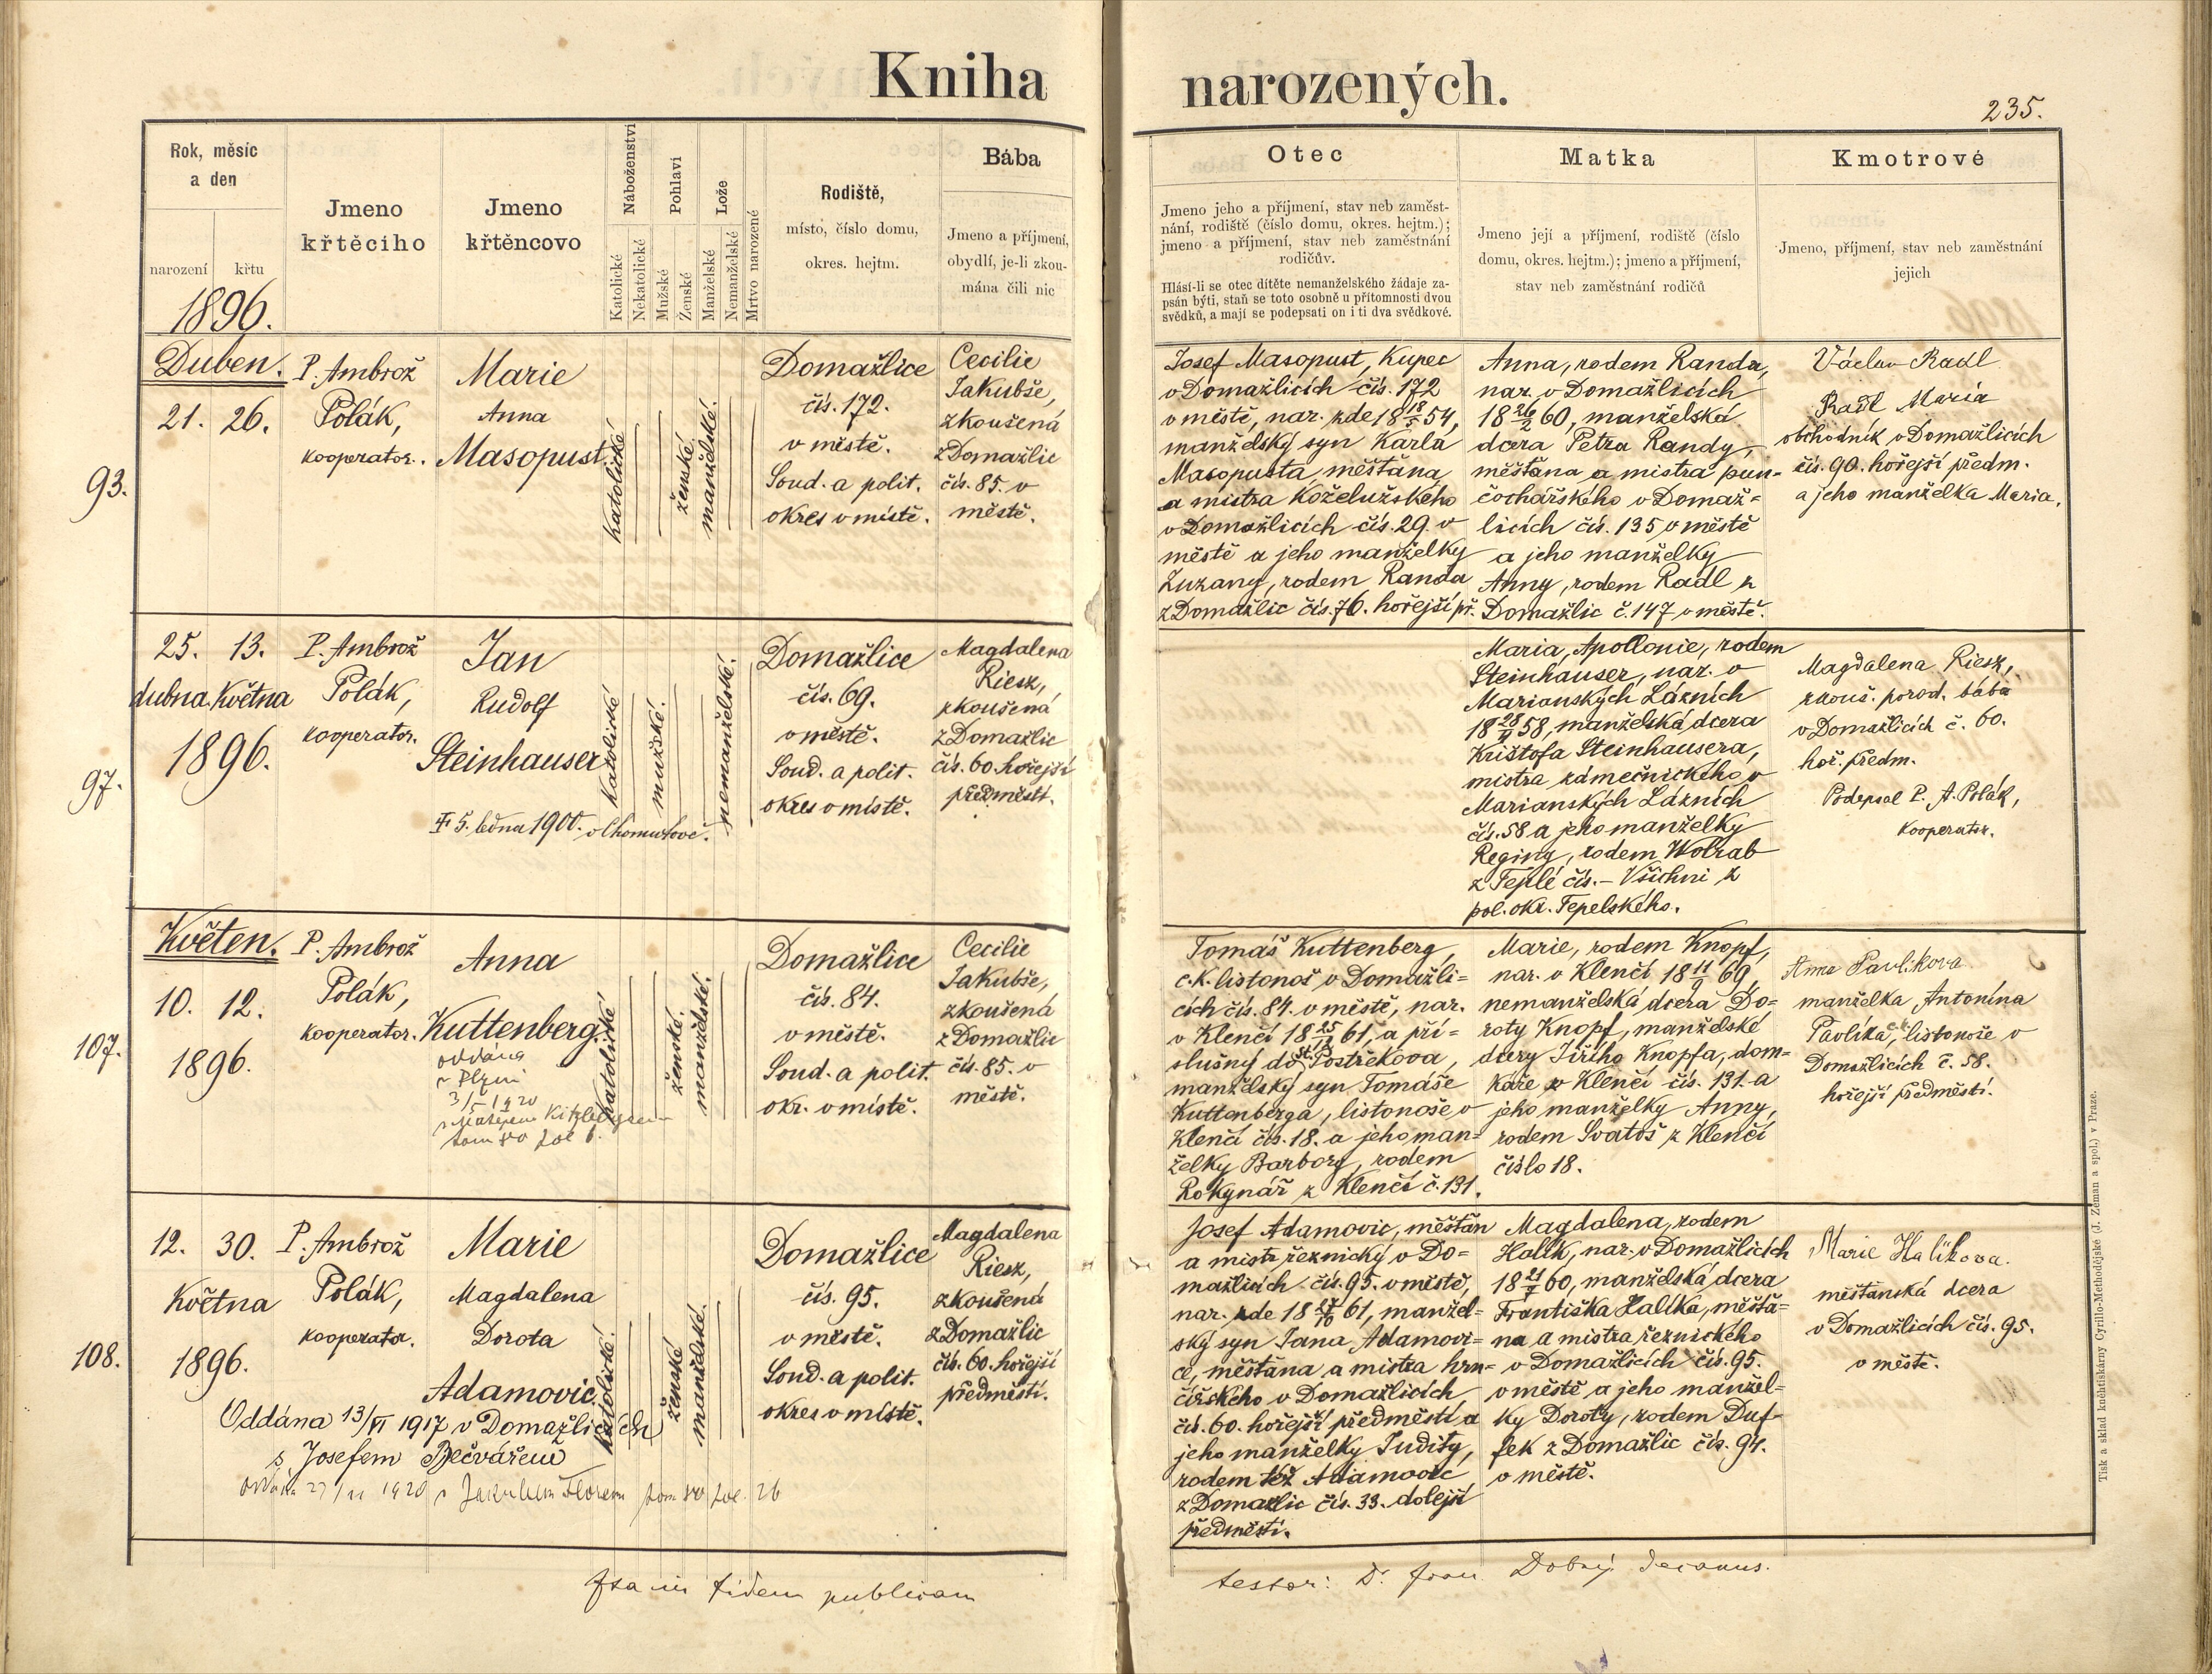 Kniha narozených.
235.
Rok, měsíc
a den
narození
křtu
1896.
Jmeno
křtěcího
Jmeno
křtěncovo
Náboženství
Katolické
Nekatolické
Pohlaví
Mužské
Ženské
Lože
Manželské
Nemanželské
Mrtvo narozené
Rodiště,
místo, číslo domu,
okres. hejtm.
Bába
Jmeno a příjmení,
obydlí, je-li zkou-
mána čili nic
Otec
Jmeno jeho a příjmení, stav neb zaměst-
nání, rodiště (číslo domu, okres. hejtm.);
jmeno a příjmení, stav neb zaměstnání
rodičův.
Hlásí-li se otec dítěte nemanželského žádaje za-
psán býti, staň se toto osobně u přítomnosti dvou
svědků, a mají se podepsati on i ti dva svědkové.
Matka
Jmeno její a příjmení, rodiště (číslo
domu, okres. hejtm.); jmeno a příjmení,
stav neb zaměstnání rodičů
Kmotrové
Jmeno, příjmení, stav neb zaměstnání
jejich
93.
Duben.
21. 26.
P. Ambrož
Polák,
kooperator.
Marie
Anna
Masopust
katolické
ženské.
manželské.
Domažlice
čís. 172.
v městě.
Soud. a polit.
okres v místě.
Cecilie
Jakubše,
zkoušená
z Domažlic
čís. 85. v
městě.
Josef Masopust, kupec
v Domažlicích čís. 172
v městě, nar. zde 18 18/5 54,
manželský syn Karla
Masopusta, měšťana
a mistra koželužského
v Domažlicích čís. 29. v
městě a jeho manželky
Zuzany, rodem Randa
z Domažlic čís. 76. hořejší př.
Anna, rodem Randa,
nar. v Domažlicích
18 26/2 60, manželská
dcera Petra Randy,
měšťana a mistra pun-
čochářského v Domaž-
licích čís. 135 v městě
a jeho manželky
Anny, rodem Radl z
Domažlic č. 147 v městě.
Václav Radl
Radl Maria
obchodník v Domažlicích
čís. 90. hořejší předm.
a jeho manželka Maria.
97.
25. 13.
dubna. Května
1896.
P. Ambrož
Polák,
kooperator.
Jan
Rudolf
Steinhauser
5. ledna 1900. v Chomutově.
katolické
mužské.
nemanželské.
Domažlice
čís. 69.
v městě.
Soud. a polit.
okres v místě.
Magdalena
Riesz,
zkoušená
z Domažlic
čís. 60. hořejší
předměstí.
Maria, Apollonie, rodem
Steinhauser, nar. v
Marianských Lázních
58, manželská dcera
Krištofa Steinhausera,
mistra zámečnického v
Marianských Lázních
čís. 58 a jeho manželky
Reginy, rodem Wolrab
z Teplé čís. – Všichni z
pol. okr. Tepelského.
Magdalena Riesz,
zkouš. porod. bába
v Domažlicích č. 60.
hoř. předm.
Podepsal P. A. Polák,
kooperator.
107.
Květen.
10. 12.
1896.
P. Ambrož
Polák,
kooperator.
Anna
Kuttenberg.
oddána
v Plzni
3/5 1920
katolické
ženské.
manželské.
Domažlice
čís. 84.
v městě.
Soud. a polit.
okr. v místě.
Cecilie
Jakubše,
zkoušená
z Domažlic
čís. 85. v
městě.
Tomáš Kuttenberg,
c.k. listonoš v Domažli-
cích čís. 84. v městě, nar.
v Klenčí 18 25/12 61, a pří-
slušný do Postřekova,
manželský syn Tomáše
Kuttenberga, listonoše v
Klenčí čís. 18. a jeho man-
želky Barbory, rodem
Rokynář z Klenčí č. 131.
Marie, rodem Knopf,
nar. v Klenčí 18 11/9 69,
nemanželská dcera Do-
roty Knopf, manželské
dcery Jiřího Knopfa, dom-
káře v Klenčí čís. 131. a
jeho manželky Anny,
rodem Svatoš z Klenčí
číslo 18.
Anna Pavlikova
manželka Antonína
Pavlíka, listonoše v
Domažlicích č. 58.
hořejší předměstí.
108.
12. 30.
Května
1896.
P. Ambrož
Polák,
kooperator.
Marie
Magdalena
Dorota
Adamovic.
Oddána 13/VI 1917 v Domažlicích
s Josefem Bečvářem
katolické.
ženské
manželské.
Domažlice
čís. 95.
v městě.
Soud. a polit.
okres v místě.
Magdalena
Riesz,
zkoušená
z Domažlic
čís. 60. hořejší
předměstí.
Josef Adamovic, měšťan
a mistr řeznický v Do-
mažlicích čís. 95. v městě,
nar. zde 61, manžel-
ský syn Jana Adamovi-
ce, měšťana a mistra hrn-
čířského v Domažlicích
čís. 60. hořejší předměstí a
jeho manželky Judity,
rodem též Adamovic
z Domažlic čís. 33. dolejší
předměstí.
Magdalena, rodem
Halík, nar. v Domažlicích
60, manželská dcera
Františka Halíka, měšťa-
na a mistra řeznického
v Domažlicích čís. 95.
v městě a jeho manžel-
ky Doroty, rodem Duf-
fek z Domažlic čís. 94.
v městě.
Marie Halikova.
měšťanská dcera
v Domažlicích čís. 95.
v městě.
in fidem publicam
testor: Dr. Fran. Dobrý decanus.
Tisk a sklad knihtiskárny Cyrillo-Methodějské (J. Zeman a spol.) v Praze.